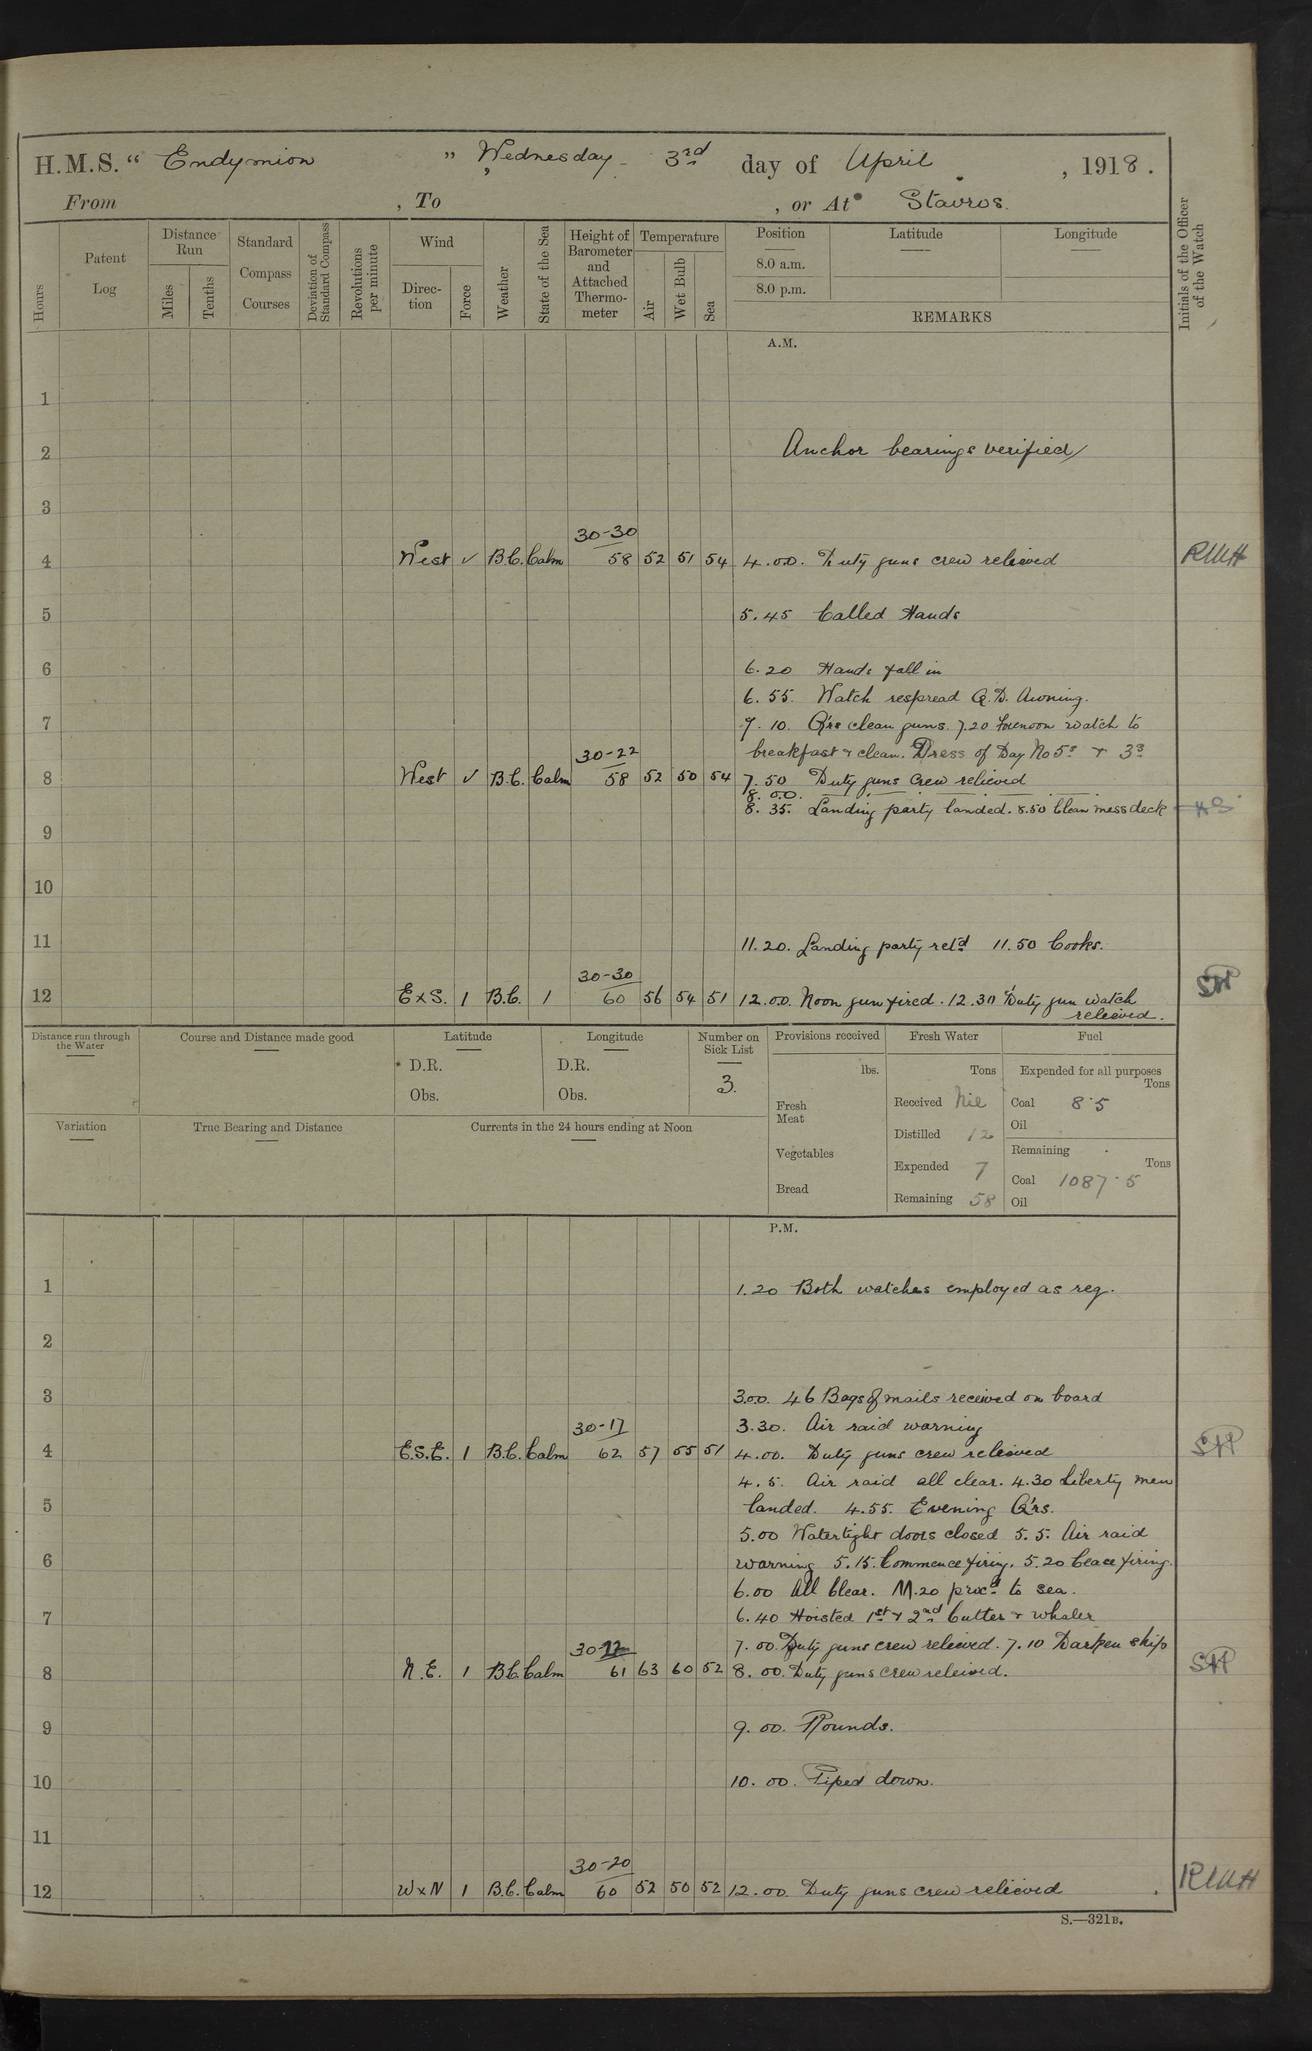 H.M.S. “ Endymion ” Wednesday 3rd day of April, 1918.
From , To , or At Stavros.
Hours
Patent Log
Distance Run
Miles
Tenths
Standard Compass Courses
Deviation of Standard Compass
Revolutions per minute
Wind
Direction
Force
Weather
State of the Sea
Height of Barometer and Attached Thermometer
Temperature
Air
Wet Bulb
Sea
Position
8.0 a.m.
8.0 p.m.
Latitude
Longitude
REMARKS
Initials of the Officer of the Watch
A.M.
1
2 Anchor bearings verified
3
30-30
4 West ✓ B.C. Calm 58 52 51 54 4.00. Duty guns crew relieved RWH
5 5.45 Called Hands
6 6.20 Hands fall in
6.55. Watch respread Q.D. Awning.
7 7.10. Qrs clean guns. 7.20 Forenoon watch to
30-22 breakfast & clean. Dress of Day No 5s & 3s
8 West ✓ B.C. Calm 58 52 50 54 7.50 Duty guns crew relieved
8.00.
8.35. Landing party landed. 8.50 Clean mess deck
9
10
11 11.20. Landing party retd 11.50 Cooks.
30-30
12 E x S. 1 B.C. 1 60 56 54 51 12.00. Noon gun fired. 12.30 Duty gun watch
relieved.
Distance run through the Water
Course and Distance made good
Latitude
D.R.
Obs.
Longitude
D.R.
Obs.
Number on Sick List
3.
Provisions received
lbs.
Fresh Meat
Vegetables
Bread
Fresh Water
Tons
Received Nil
Distilled 12
Expended 7
Remaining 58
Fuel
Expended for all purposes
Tons
Coal 8·5
Oil
Remaining
Tons
Coal 1087·5
Oil
Variation
True Bearing and Distance
Currents in the 24 hours ending at Noon
P.M.
1 1.20 Both watches employed as req.
2
3 3.00. 46 Bags of mails received on board
30-17 3.30. Air raid warning
4 E.S.E. 1 B.C. Calm 62 57 55 51 4.00. Duty guns crew relieved
4.5. Air raid all clear. 4.30 Liberty men
5 landed. 4.55. Evening Qrs.
5.00 Watertight doors closed 5.5. Air raid
6 warning 5.15. Commence firing. 5.20 Cease firing.
6.00 All Clear. M.20 procd to sea.
7 6.40 Hoisted 1st & 2nd Cutter & whaler
30- 7.00. Duty guns crew relieved. 7.10 Darken ship
8 N.E. 1 B.C. Calm 61 63 60 52 8.00. Duty guns crew relieved.
9 9.00. Rounds.
10 10.00. Piped down.
11
30-20
12 W x N 1 B.C. Calm 60 52 50 52 12.00. Duty guns crew relieved RWH
S.—321B.